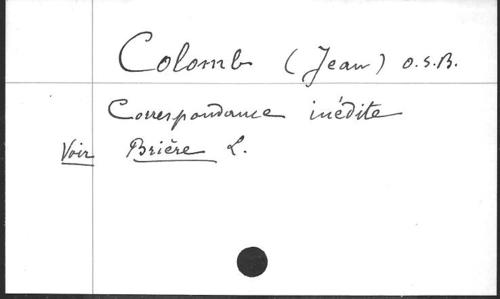 Colomb (Jean) O.S.B.
Correspondance inédite
Voir Brière L.